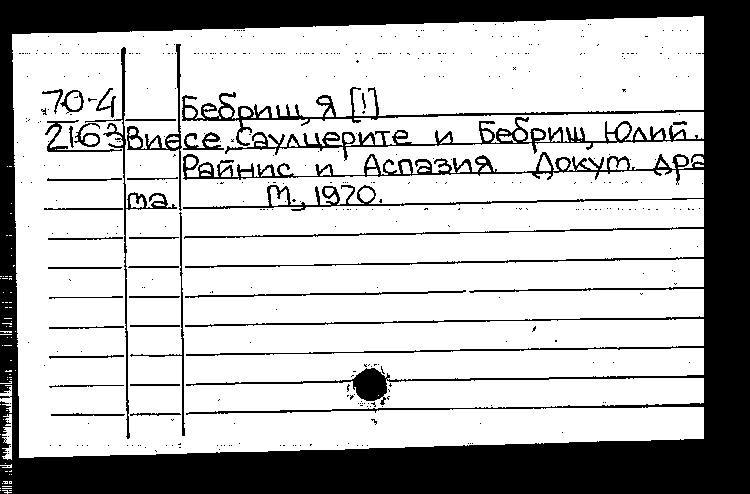 70-4 Бебриш, Я [!]
2163 Виесе, Саулцерите и Бебриш, Юлий.
Райнис и Аспазия. Докут. дра
та. М., 1970.